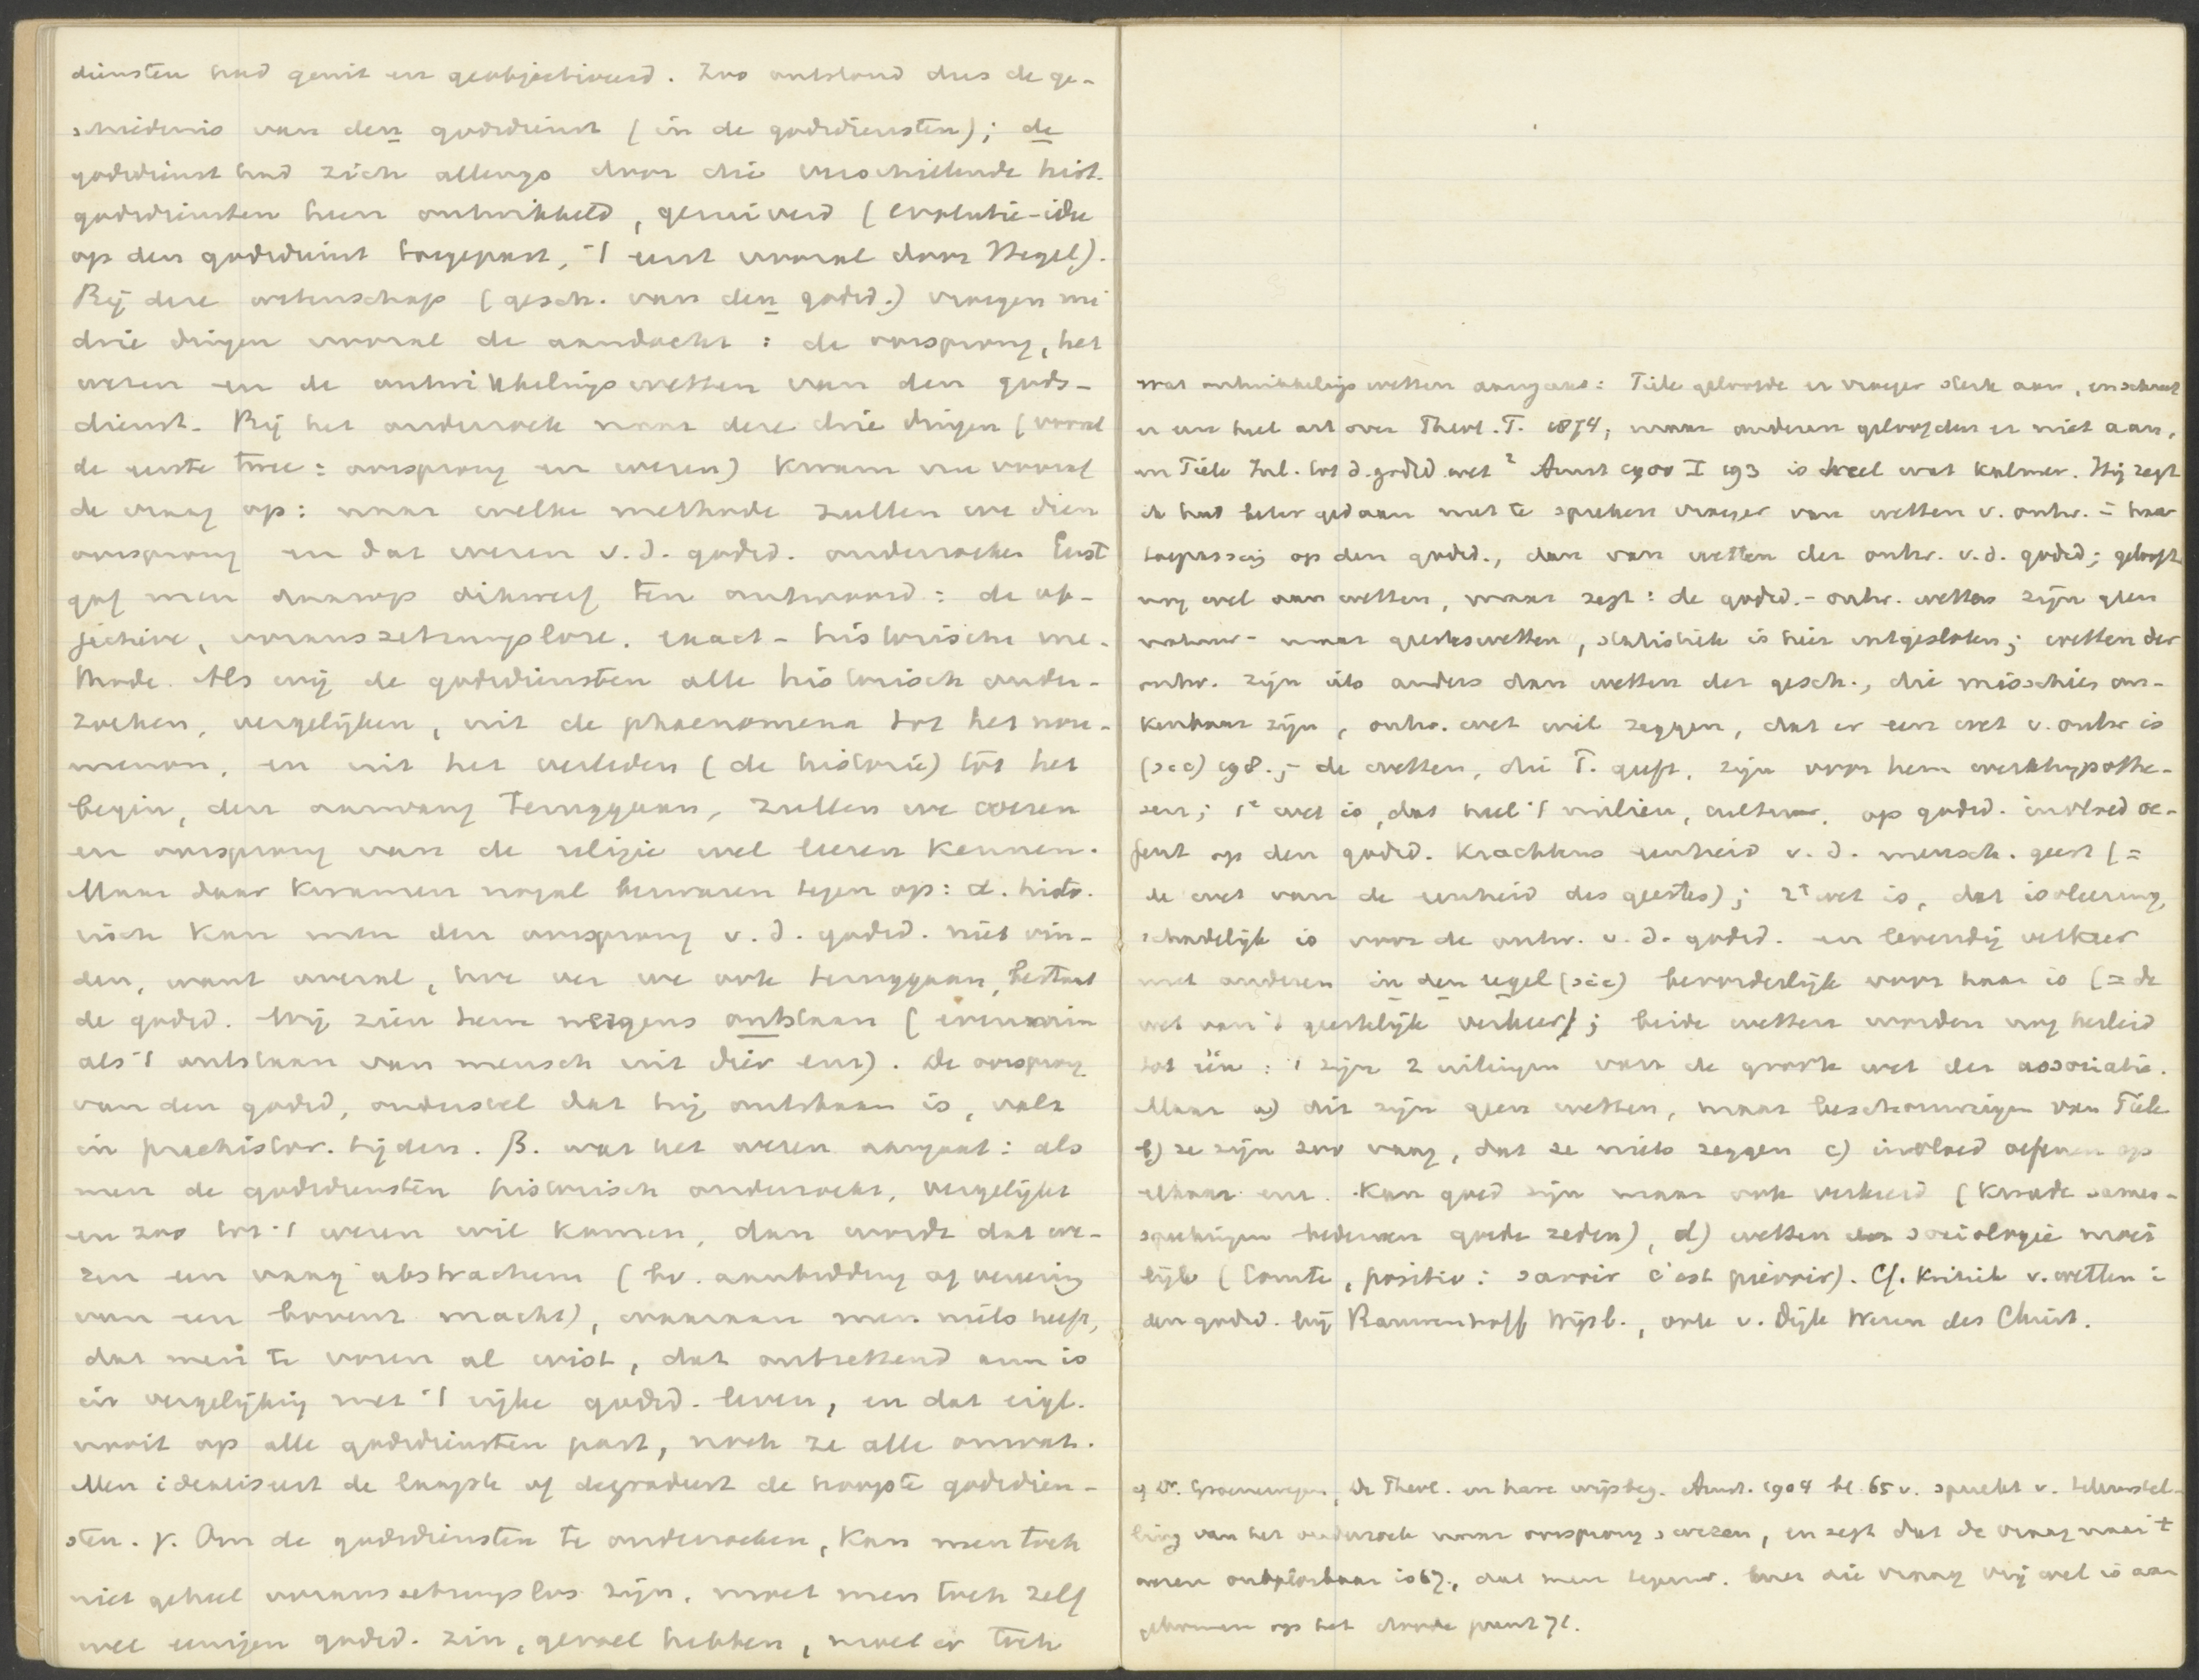 diensten had geuit en geobjectiveerd. Zoo ontstond dus de ge-
schiedenis van den godsdienst (in de godsdiensten); de
godsdienst had zich allengs door die verschillende hist.
godsdiensten heen ontwikkeld, gezuiverd (evolutie-idee
op den godsdienst toegepast, 't eerst vooral door Hegel).
Bij deze wetenschap (gesch. van den godsd.) vroegen nu
drie dingen vooral de aandacht: de oorsprong, het
wezen en de ontwikkelingswetten van den gods-
dienst. Bij het onderzoek naar deze drie dingen (vooral
de eerste twee: oorsprong en wezen) kwam nu vooraf
de vraag op: naar welke methode zullen we dien
oorsprong en dat wezen v.d. godsd. onderzoeken Eerst
gaf men daarop dikwerf ten antwoord: de ob-
jectieve, voraussetzungslose, exact-historische me-
thode. Als wij de godsdiensten alle historisch onder-
zoeken, vergelijken, uit de phaenomena tot het nou-
menon, en uit het verleden (de historie) tot het
begin, den aanvang teruggaan, zullen we wezen
en oorsprong van de religie wel leeren kennen.
Maar daar kwamen nogal bezwaren tegen op: α. histo-
risch kan men den oorsprong v.d. godsd. niet vin-
den, want overal, hoe ver we ook teruggaan, bestaat
de godsd. Wij zien hem nergens ontstaan (evenmin
als 't ontstaan van mensch uit dier enz). De oorsprong
van den godsd, ondersteld dat hij ontstaan is, valt
in praehistor. tijden. β. wat het wezen aangaat: als
men de godsdiensten historisch onderzoekt, vergelijkt
en zoo tot 't wezen wil komen, dan wordt dat we-
zen een vaag abstractum (bv. aanbidding of vereering
van een bovenz. macht), waaraan men niets heeft,
dat men te voren al wist, dat ontzettend arm is
in vergelijking met 't rijke godsd. leven, en dat eigl.
nooit op alle godsdiensten past, noch ze alle omvat.
Men idealiseert de laagste of degradeert de hoogste godsdien-
sten. γ. Om de godsdiensten te onderzoeken, kan men toch
niet geheel voraussetzungslos zijn, moet men toch zelf
wel eenigen godsd. zin, gevoel hebben, moet er toch
Wat ontwikkelings wetten aangaat: Tiele geloofde er vroeger sterk aan, en schreef
er een heel art over Theol. T. 1874, maar anderen geloofden er niet aan,
en Tiele Inl. tot d. godsd. wet² Amst 1900 I 193 is heel wat kalmer. Hij zegt
ik had beter gedaan met te spreken vroeger van wetten v. ontw. in haar
toepassing op den godsd., dan van wetten der ontw. v.d. godsd; gelooft
nog wel aan wetten, maar zegt: de godsd.-ontw. wetten zijn geen
natuur- maar geesteswetten, statistiek is hier uitgesloten; wetten der
ontw. zijn iets anders dan wetten der gesch., die misschien on-
kenbaar zijn, ontw. wet wil zeggen, dat er een wet v. ontw is
(sic) 198.; de wetten, die T. geeft, zijn voor hem werkhypothe-
sen; 1e wet is, dat heel 't milieu, cultuur, op godsd. invloed oe-
fent op den godsd. krachtens eenheid v.d. mensch. geest (=
de wet van de eenheid des geestes); 2e wet is, dat isoleering
schadelijk is voor de ontw. v.d. godsd. en levendig verkeer
met anderen in den regel (sic) bevorderlijk voor haar is (= de
wet van 't geestelijk verkeer); beide wetten worden nog herleid
tot één: 't zijn 2 uitingen van de groote wet der associatie.
Maar a) dit zijn geen wetten, maar beschouwingen van Tiele
b) ze zijn zoo vaag, dat ze niets zeggen c) invloed oefenen op
elkaar enz. kan goed zijn maar ook verkeerd (kwade samen-
sprekingen bederven goede zeden), d) wetten der sociologie moei
lijk (Comte, positiv: savoir c'est prévoir). Cf. kritiek v. wetten in
den godsd. bij Rauwenhoff Wijsb., ook v. Dijk Wezen des Christ.
cf Dr. Groenewegen, De Theol. en hare wijsbeg. Amst. 1904 bl. 65 v. spreekt v. teleurstel-
ling van het onderzoek naar oorsprong & wezen, en zegt dat de vraag naar 't
wezen onoplosbaar is 67., dat men tegenw. over die vraag vrij wel is aan
gekomen op het doode punt 71.